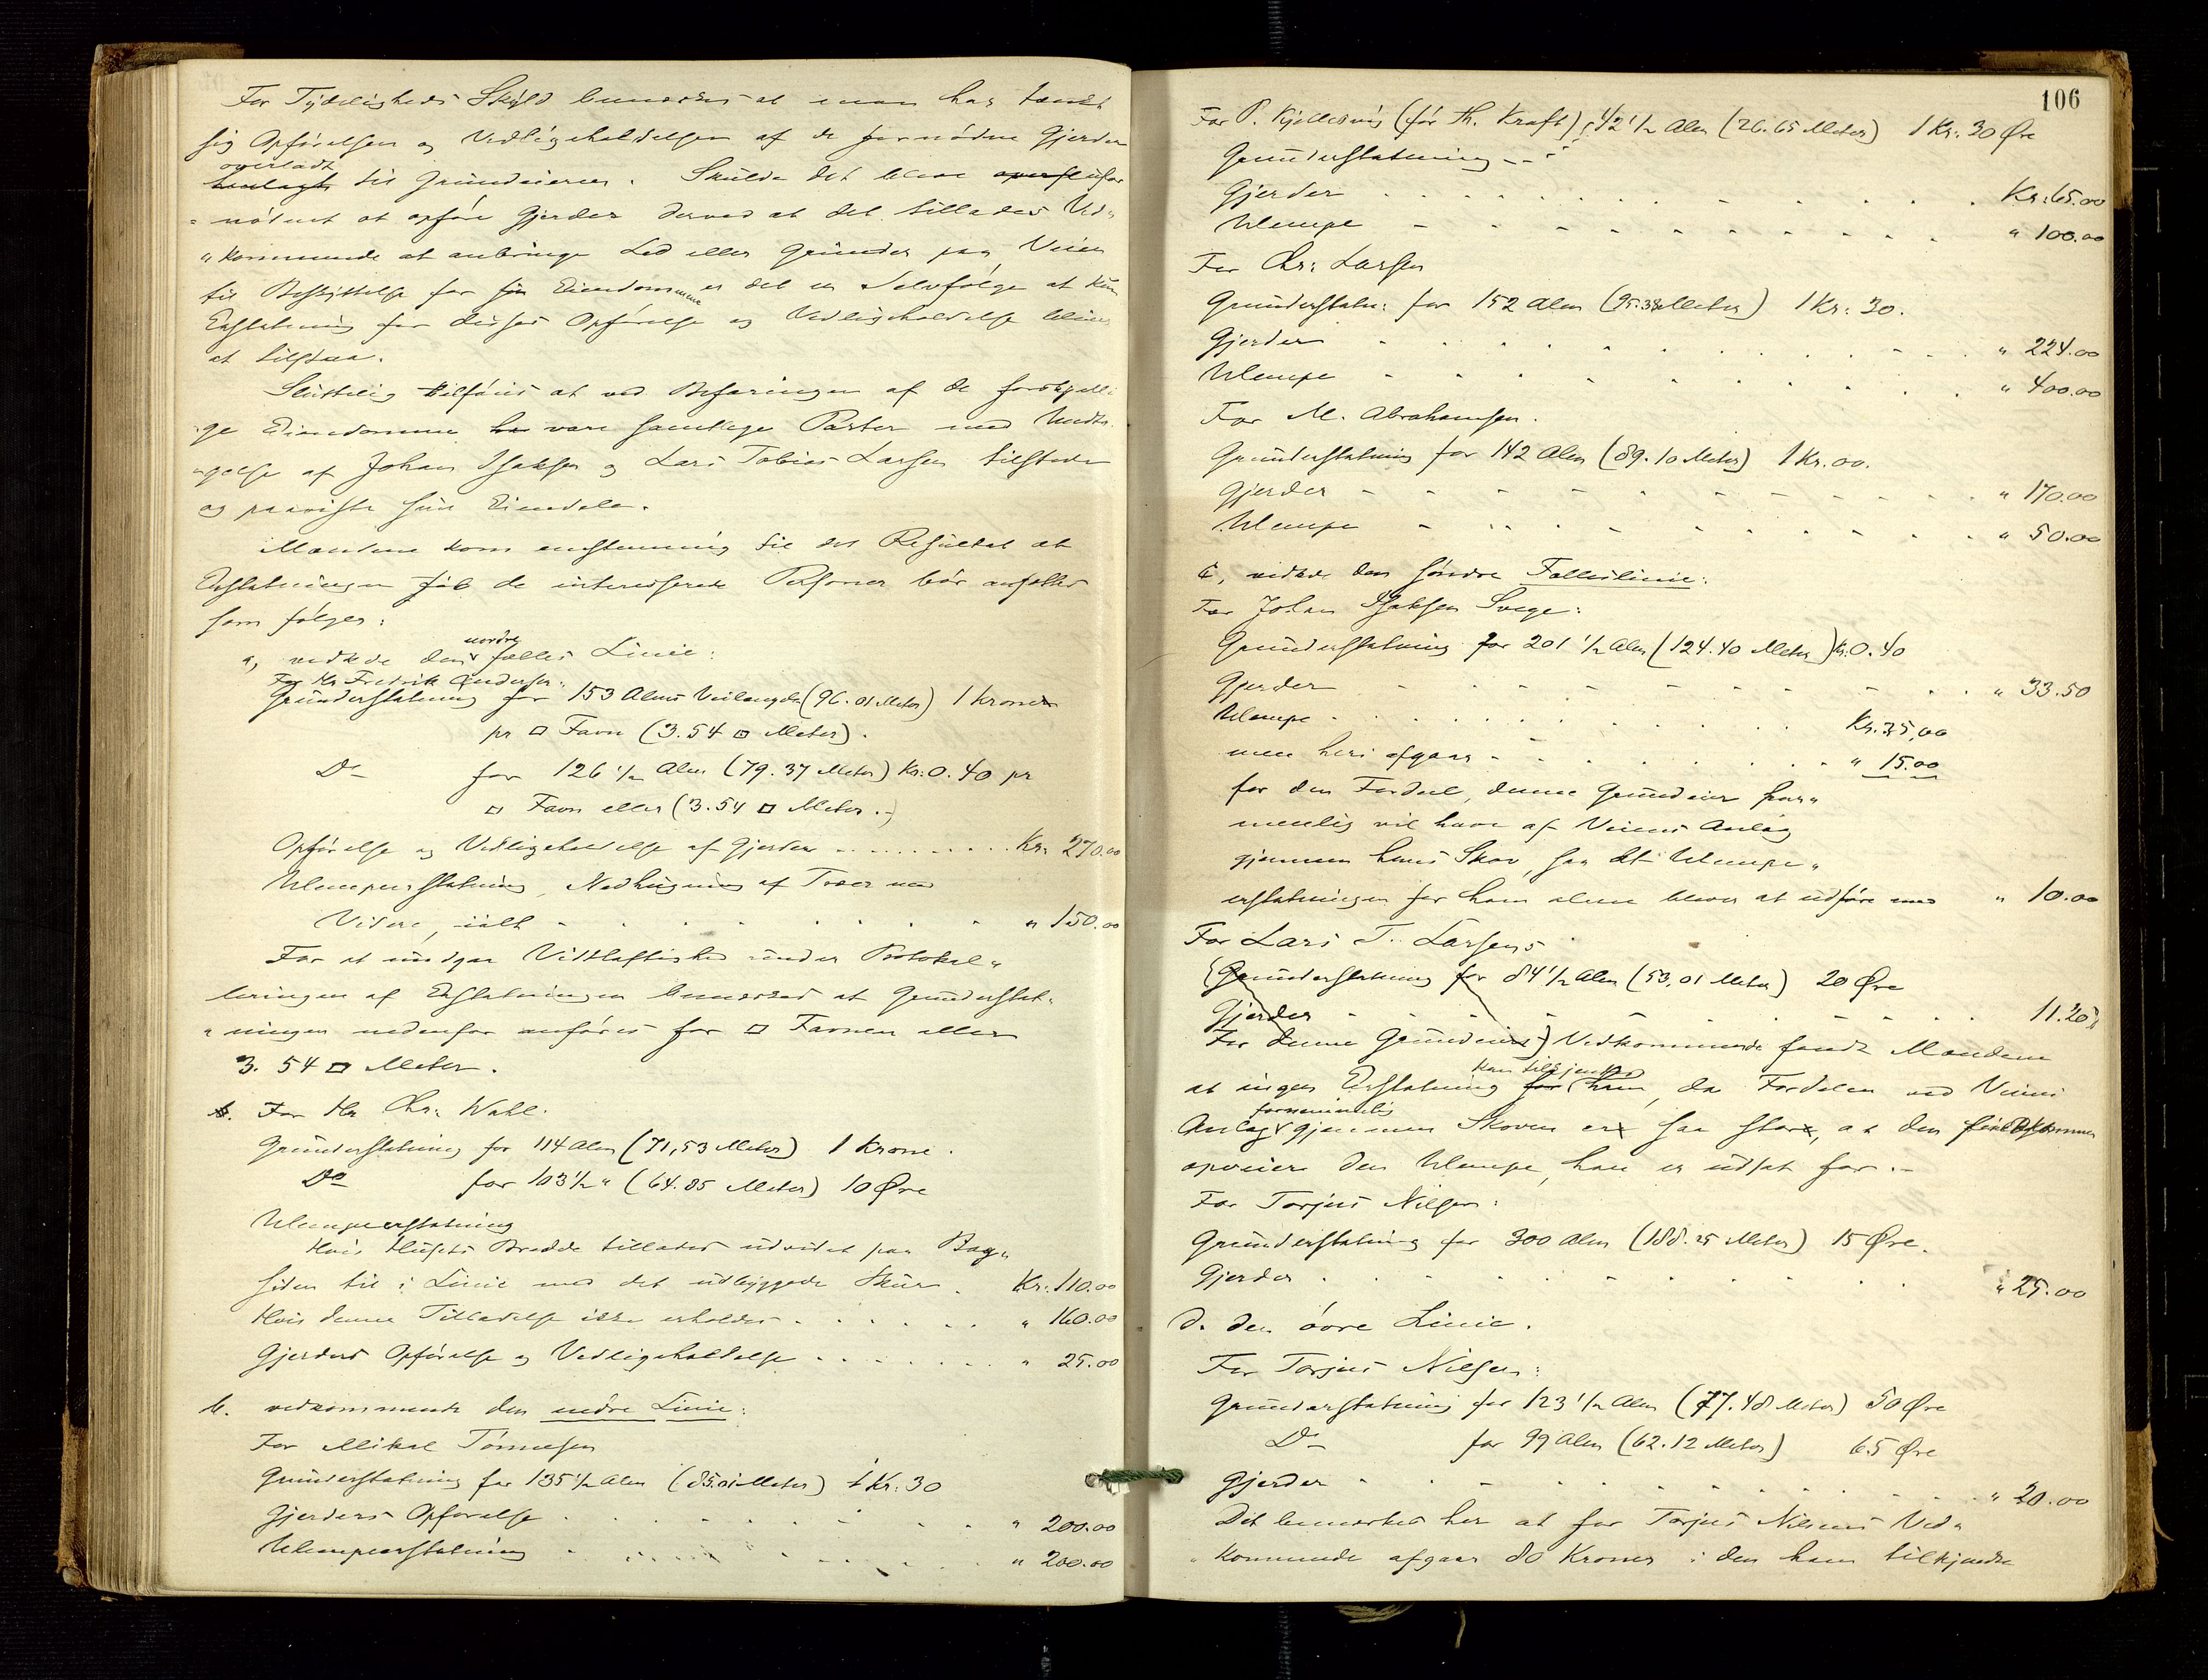 For Tydeligheds Skyld bemærkes at man har tænkt
sig Opførelsen og Vedligeholdelsen af de fornødne Gjerder
overladt
henlagt til Grundeieren. Skulde det blive overfl ufor
=nødent at opføre Gjerder derved at det tillades Ved"
"kommende at anbringe Led eller Grinder paa Veien
til Beskyttelse for sin Eiendommene er det en Selvfølge at kun
Erstatning for disses Opførelse og Vedligeholdelse bliver
at tilstaa.
Sluttelig tilføies at ved Befaringen af de forskjelli
"ge Eiendomme ha vare samtlige Parter med Undta
"gelse af Johan Isaksen og Lars Tobias Larsen tilstede
og paaviste sine Eiendele.
Mændene kom enstemmig til det Resultat at
Erstatningen for de interesserede Personer bør ansættes
som følger:
nordre
a, vedkde den fælles Linie:
For Hr Fredrik Andersen:
Grunderstatning for 153 Alens Veilængde (96.01 Meter) 1 Krone
pr □ Favn (3.54 □ Meter).
Do for 126 1/2 Alen (79.37 Meter) Kr: 0.40 pr
□ Favn eller (3.54 □ Meter.-)
Opførelse og Vedligeholdelse af Gjerder .......... Kr: 270.00
Ulempeerstatning, Nedhugning af Træer med
Videre, ialt - . . . . . . . " 150.00
For at undgaa Vidtløftighed under Protokol"
leringen af Erstatningen bemærkes at Grunderstat"
"ningen nedenfor anføres for □ Favnen eller
3.54 □ Meter.
b. For Hr Chr: Wahl.
Grunderstatning for 114 Alen (71,53 Meter) 1 Krone.
Do for 103 1/2 " (64.85 Meter) 10 Øre
Ulempeerstatning
Hvis Husets Bredde tillades udvidet paa Bag"
siden til i Linie med det udbyggede Skur . Kr: 110.00
Hvis denne Tilladelse ikke erholdes . . . . . . " 160.00
Gjerders Opførelse og Vedligeholdelse . . . . . . " 25.00
b. vedkommende den nedre Linie:
For Mikal Tønnesen
Grunderstatning for 135 1/2 Alen (85.01 Meter) 1 Kr: 30
Gjerders Opførelse . . . . . . . . " 200.00
Ulempeerstatning . . . . . . . . " 200.00
106
For P. Kjellesvig (før Th. Kraft); 42 1/2 Alen (26.65 Meter) 1 Kr: 30 Øre
Grunderstatning
Gjerder . . . . . . . . . Kr: 65.00
Ulempe - - - - - - - - - " 100.00
For Chr: Larsen
Grunderstatn: for 152 Alen (95.38 Meter) 1 Kr: 30.
Gjerder . . . . . . . . . " 224.00
Ulempe - . . . . . . . . " 400.00
For M. Abrahamsen.
Grunderstatning for 142 Alen (89.10 Meter) 1 Kr. 00.
Gjerder - - - - - - - - - " 170.00
Ulempe - - - - - - - - " 50.00
c, vedkde den søndre Fælleslinie:
For Johan Isaksen Svege:
Grunderstatning for 201 1/2 Alen (124.40 Meter) Kr: 0.40
Gjerder - - - - - - - - " 33.50
Ulempe . . . . . . . . . Kr. 25,00
men heri afgaar - . . . . . . " 15.00
for den Fordel, denne Grundeier for"
mentlig vil have af Veiens Anlæg
gjennem hans Skov, saa at Ulempe"
erstatningen for ham alene bliver at udføre med " 10.00
For Lars T. Larsen:
(Grunderstatning for 84 1/2 Alen (53,01 Meter) 20 Øre
Gjerder - - - - - - - - 11.20)
For denne Grundeiers) Vedkommende fandt Mændene
kan tilkjendes
at ingen Erstatning for ham, da Fordelen ved Veiens
formentlig
Anlæg gjennem Skoven er saa stor, at den
opveier den Ulempe, han er udsat for.-
For Torjus Nilsen:
Grunderstatning for 300 Alen (188.25 Meter) 15 Øre.
Gjerder . . . . . . . . . " 25.00
d. den øvre Linie.
For Torjus Nilsen:
Grunderstatning for 123 1/2 Alen (77.48 Meter) 50 Øre
Do for 99 Alen (62.12 Meter) 65 Øre
Gjerder - . . . . . . . . " 20.00
Det bemærkes her at for Torjus Nilsens Ved"
"kommende afgaar 80 Kroner i den ham tilkjendte